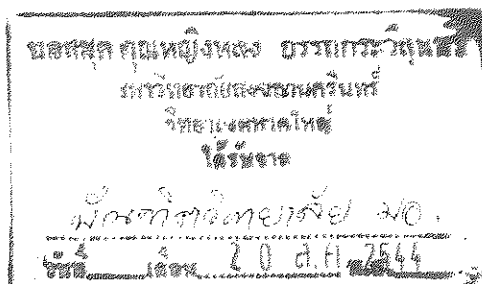 หอสมุด คุณหญิงหลง อรรถกระวีสุนทร
มหาวิทยาลัยสงขลานครินทร์
วิทยาเขตหาดใหญ่
ได้รับจาก
บัณฑิตวิทยาลัย มอ.
วันที่ เดือน 20 ส.ค. 2544